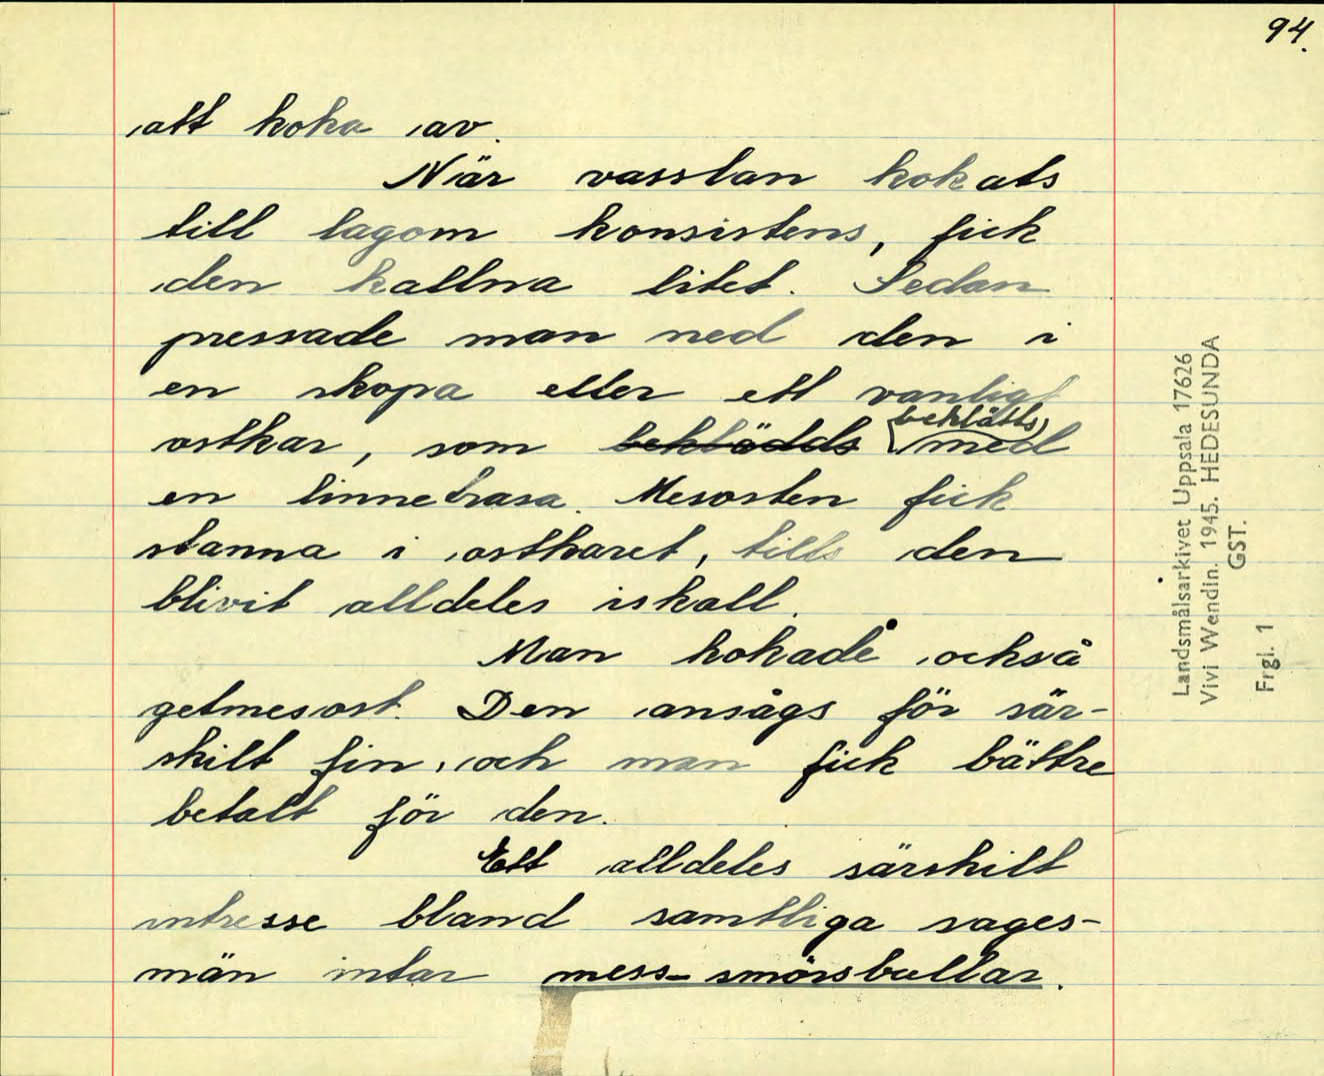 94.
att koka av.
När vasslan kokats
till lagom konsistens, fick
den kallna litet. Sedan
pressade man ned den i
en skopa eller ett vanligt
ostkar, som beklädds beklätts med
en linnetrasa. Mesosten fick
stanna i ostkaret, tills den
blivit alldeles iskall.
Man kokade också
getmesost. Den ansågs för sär-
skilt fin, och man fick bättre
betalt för den.
Ett alldeles särskilt
intresse bland samtliga sages-
män intar mess-smörsbullar.
Landsmålsarkivet Uppsala 17626
Vivi Wendin. 1945. HEDESUNDA
GST.
Frgl. 1